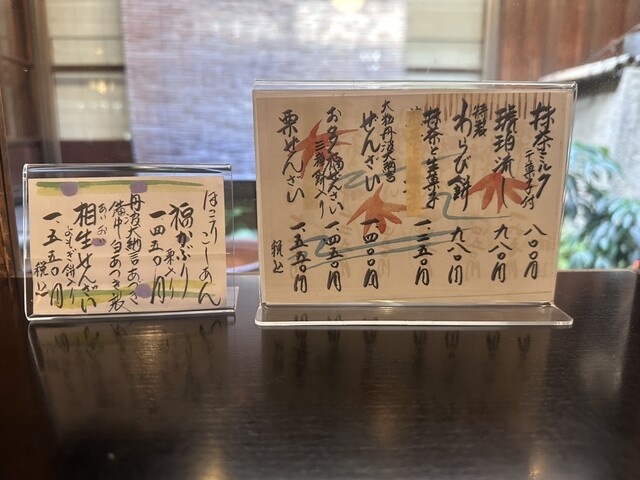 抹茶ミルク
干菓子付
八〇〇円
琥珀流し
九八〇円
特製
わらび餅
九八〇円
抹茶と生菓子
大粒丹波大納言
ぜんざい
一、一四〇〇円
お多福ぜんざい
三福餅入り
一四五〇円
栗ぜんざい
一、五五〇円
税込
ほっこりこしあん
福かぶり
栗入り
一四五〇円
丹波大納言あずき
備中白あずき製
相生ぜんざい
あいおい
よもぎ餅入り
一、五五〇円
税込